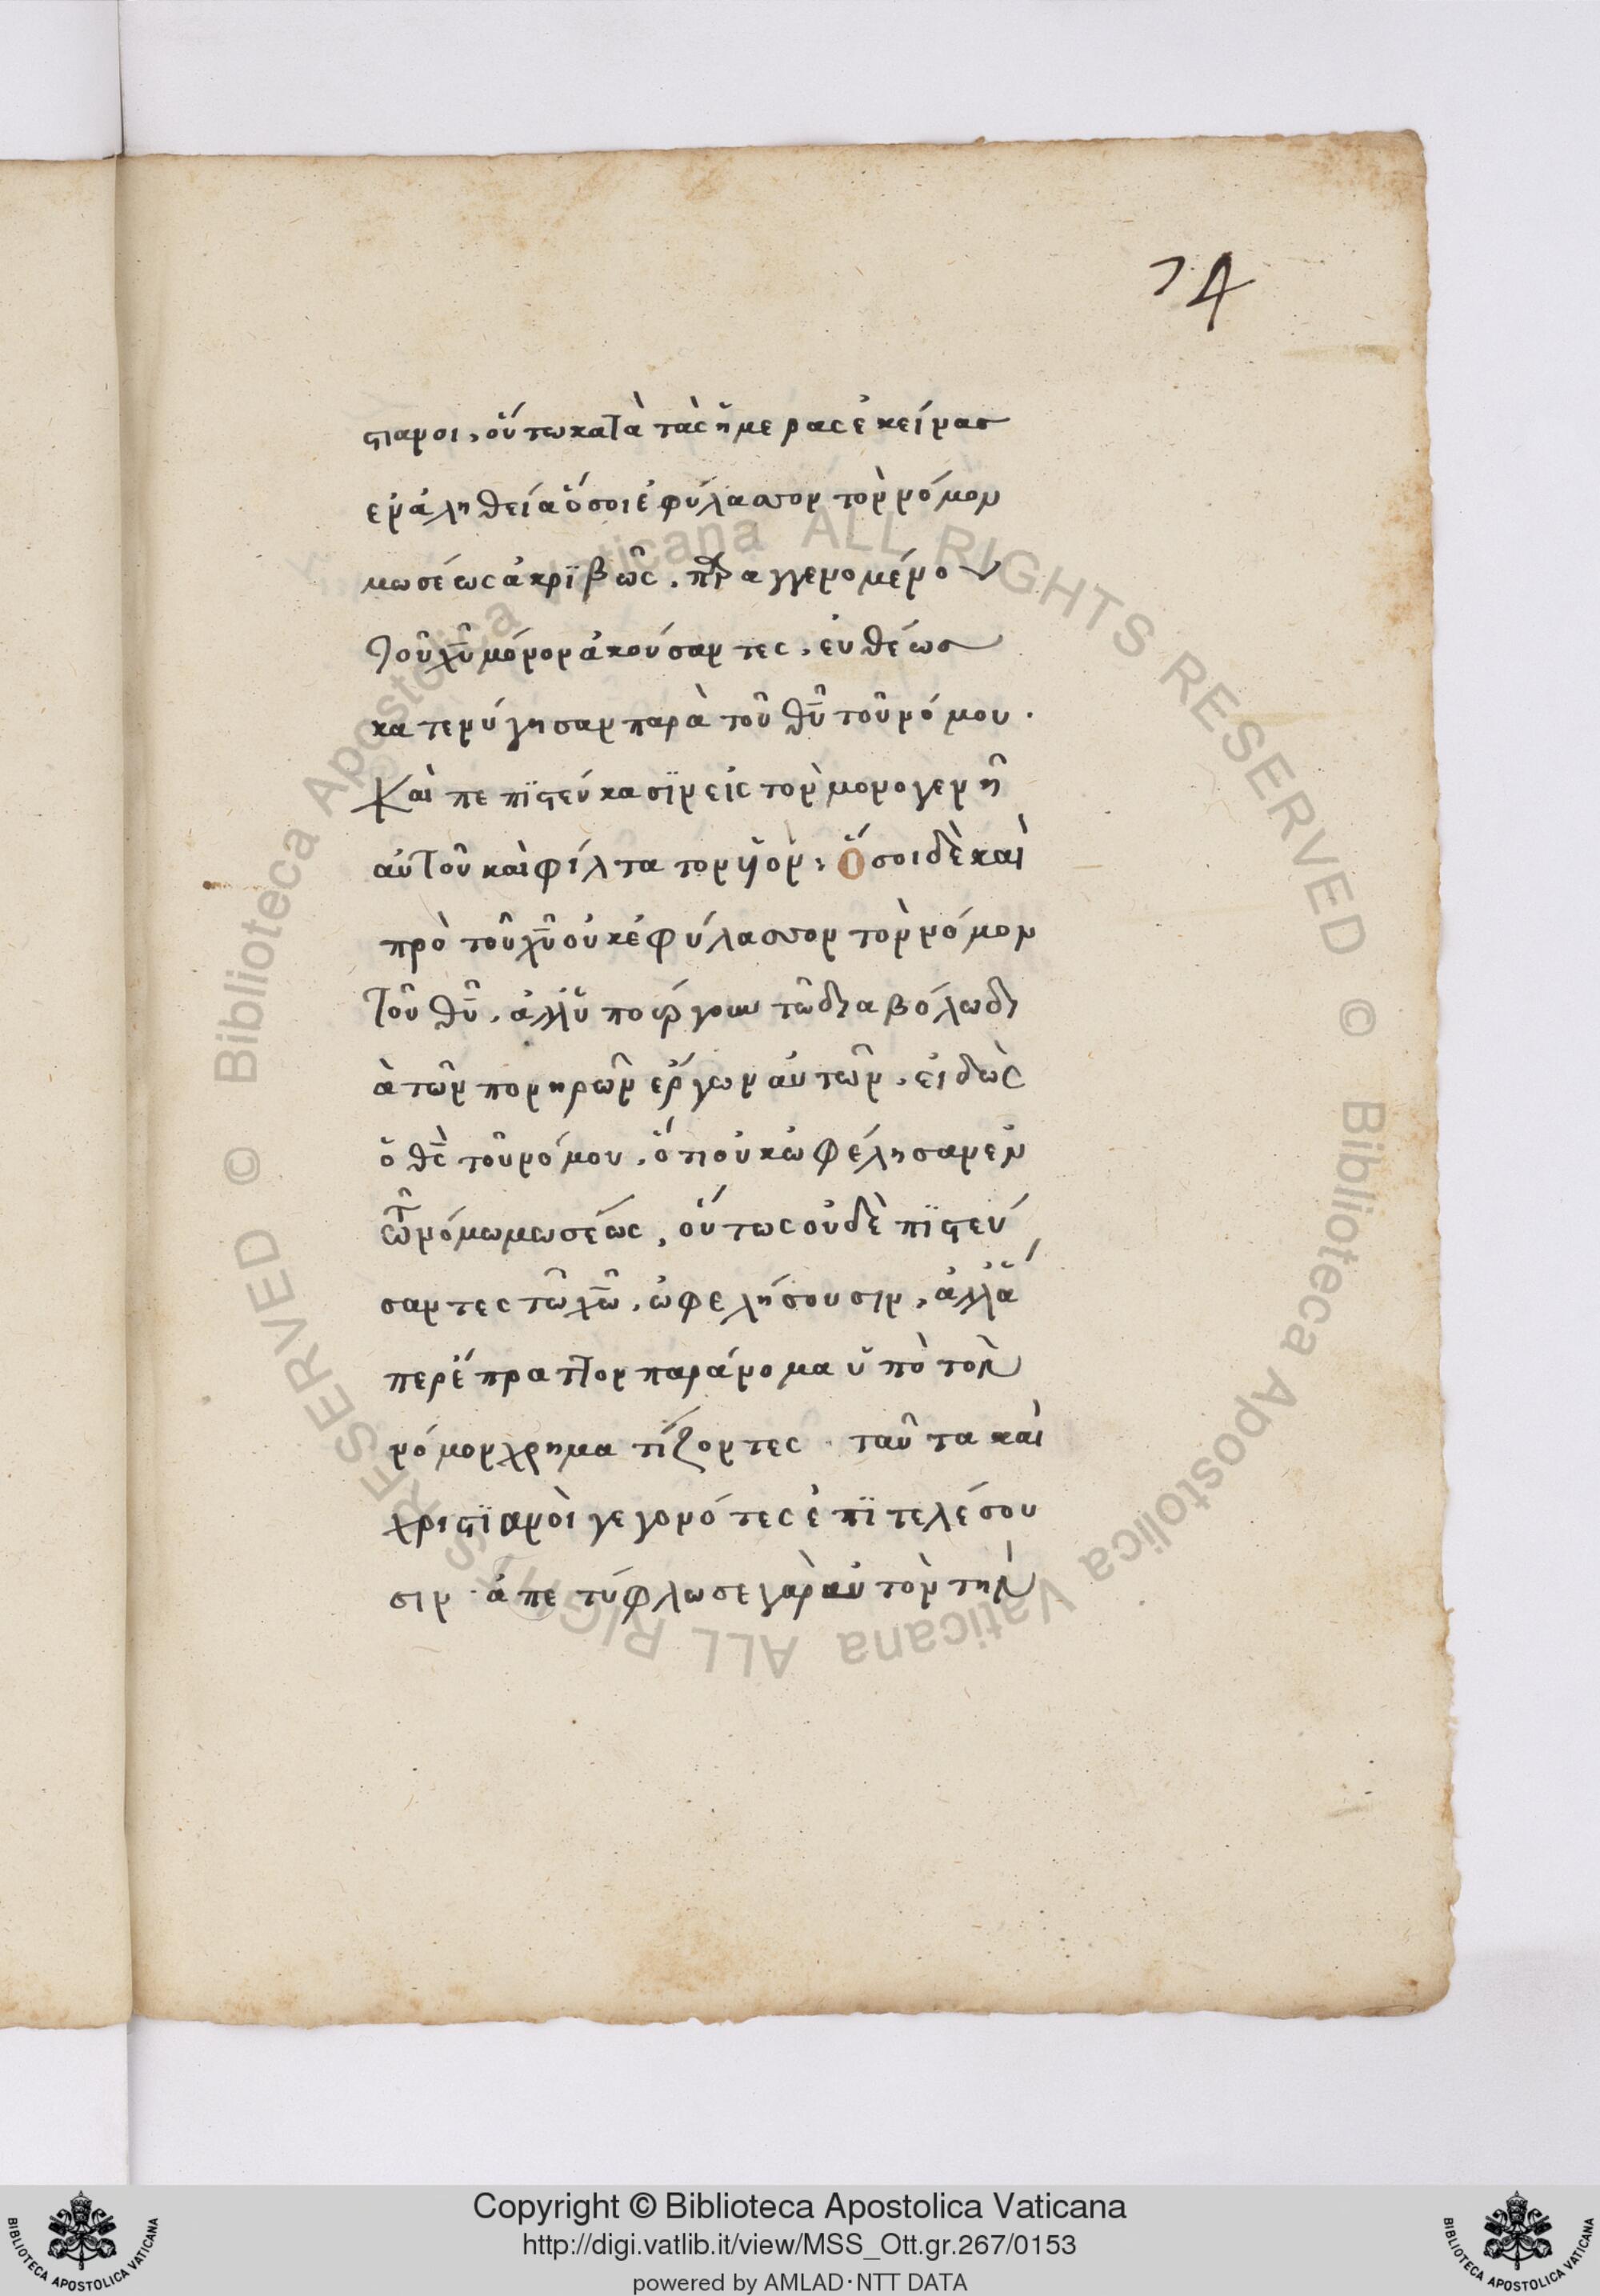 74
στιανοι, οὕτω κατὰ τὰς ἡμέρας ἐκείνας
ἐν ἀληθεία ὅσοι ἐφύλασσον τὸν νόμον
μωσέως ἀκρϊβῶς. παραγγενομένου
τοῦ χῦ μόνον ἀκούσαντες, εὐθέως
κατενύγησαν παρὰ τοῦ θῦ τοῦ νόμου.
Καὶ πεπϊστεύκασϊν εἰς τὸν μονογενῆ
αὐτοῦ καὶ φίλτατον ϋἱόν, Ὅσοι δὲ καὶ
πρὸ τοῦ χῦ οὐκ ἐφύλασσον τὸν νόμον
τοῦ θῦ, ἀλλ' ὑπούργουν τῶ διαβόλω δι
ὰ τῶν πονηρῶν ἔργων αὐτῶν. εἰδὼς
ὁ θς τοῦ νόμου, ὅτι οὐκ ὠφέλησαν ἐν
τῶ νόμω μωσέως, οὕτως οὐδὲ πϊστεύ
σαντες τῶ χῶ, ὠφελήσουσιν, ἀλλ' ἅ
περ ἔπραττον παράνομα ὑπὸ τὸν
νόμον χρηματίζοντες. ταῦτα καὶ
χριστϊανοὶ γεγονότες ἐπϊτελέσου
σιν. ἀπετύφλωσε γὰρ αὐτὸν τὴν
Copyright © Biblioteca Apostolica Vaticana
http://digi.vatlib.it/view/MSS_Ott.gr.267/0153
powered by AMLAD·NTT DATA
BIBLIOTECA APOSTOLICA VATICANA
BIBLIOTECA APOSTOLICA VATICANA
© Biblioteca Apostolica Vaticana ALL RIGHTS RESERVED © Biblioteca Apostolica Vaticana ALL RIGHTS RESERVED